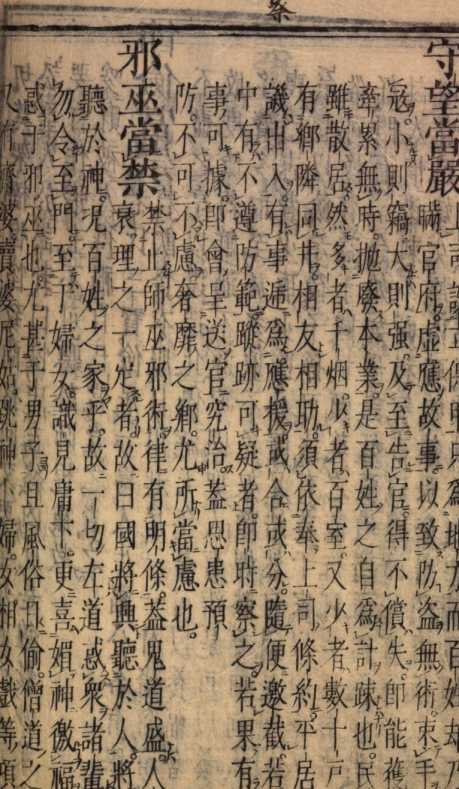 察
守望當嚴
上司設立保甲只爲地方而百姓却乃
瞞官府虛應故事以致防盜無術束手
寇小則竊大則强及至告官得不償失即能獲
牽累無時拋廢本業是百姓之自爲計疎也民
雖散居然多者千烟少者百室又少者數十戸
有鄉隣同井相友相助須依奉上司條約平居
議出入有事遞爲應援或合或分隨便邀截若
中有不遵防範蹤跡可疑者即時察之若果有
事可據即會呈送官究治蓋思患預
防不可不慮奢靡之鄉尤所當慮也
邪巫當禁
禁止師巫邪術律有明條蓋鬼道盛人
衰理之一定者故曰國將興聽於人將
聽於神况百姓之家乎故一切左道惑衆諸輩
勿令至門至于婦女識見庸下更喜媚神徼福
惑于邪巫也尤甚于男子且風俗日偷僧道之
又有齋婆賣婆尼姑跳神卜婦女相女戲等項